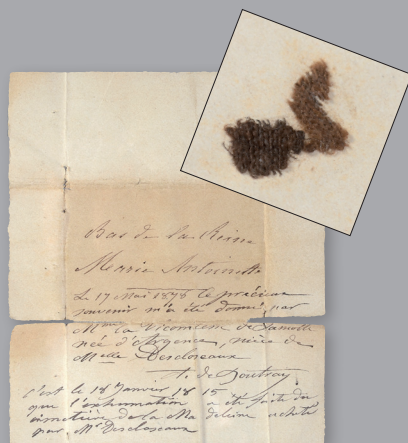 Bas de la Reine
Marie Antoinette
Le 17 mai 1878 ce précieux
souvenir m'a été donné par
Mme la Vicomtesse de
née d'Argence, nièce de
Melle Descloseaux
de
C'est le 18 Janvier 1815
que l'exhumation a été faite du
cimetière de la Madeleine acheté
par Mr Descloseaux